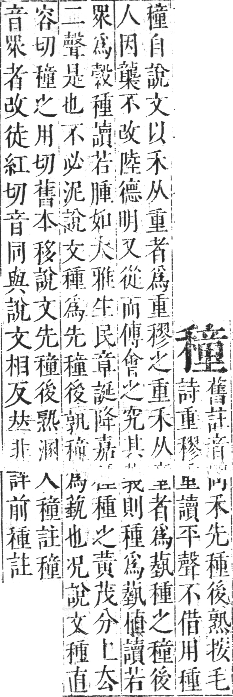 穜
舊註音同禾先種後熟按毛
詩重穋重讀平聲不借用種
穜自說文以禾从重者為重穋之重禾从童者為蓺種之種後
人因襲不改陸德明又從而傅會之究其實則種為蓺植讀若
眾為穀種讀若腫如大雅生民章誕降嘉種種之黃茂分上去
二聲是也不必泥說文種為先種後孰穜為蓺也况說文種直
容切穜之用切舊本移說文先穜後熟溷入穜註穜
音眾者改徒紅切音同與說文相反𠀤非詳前種註